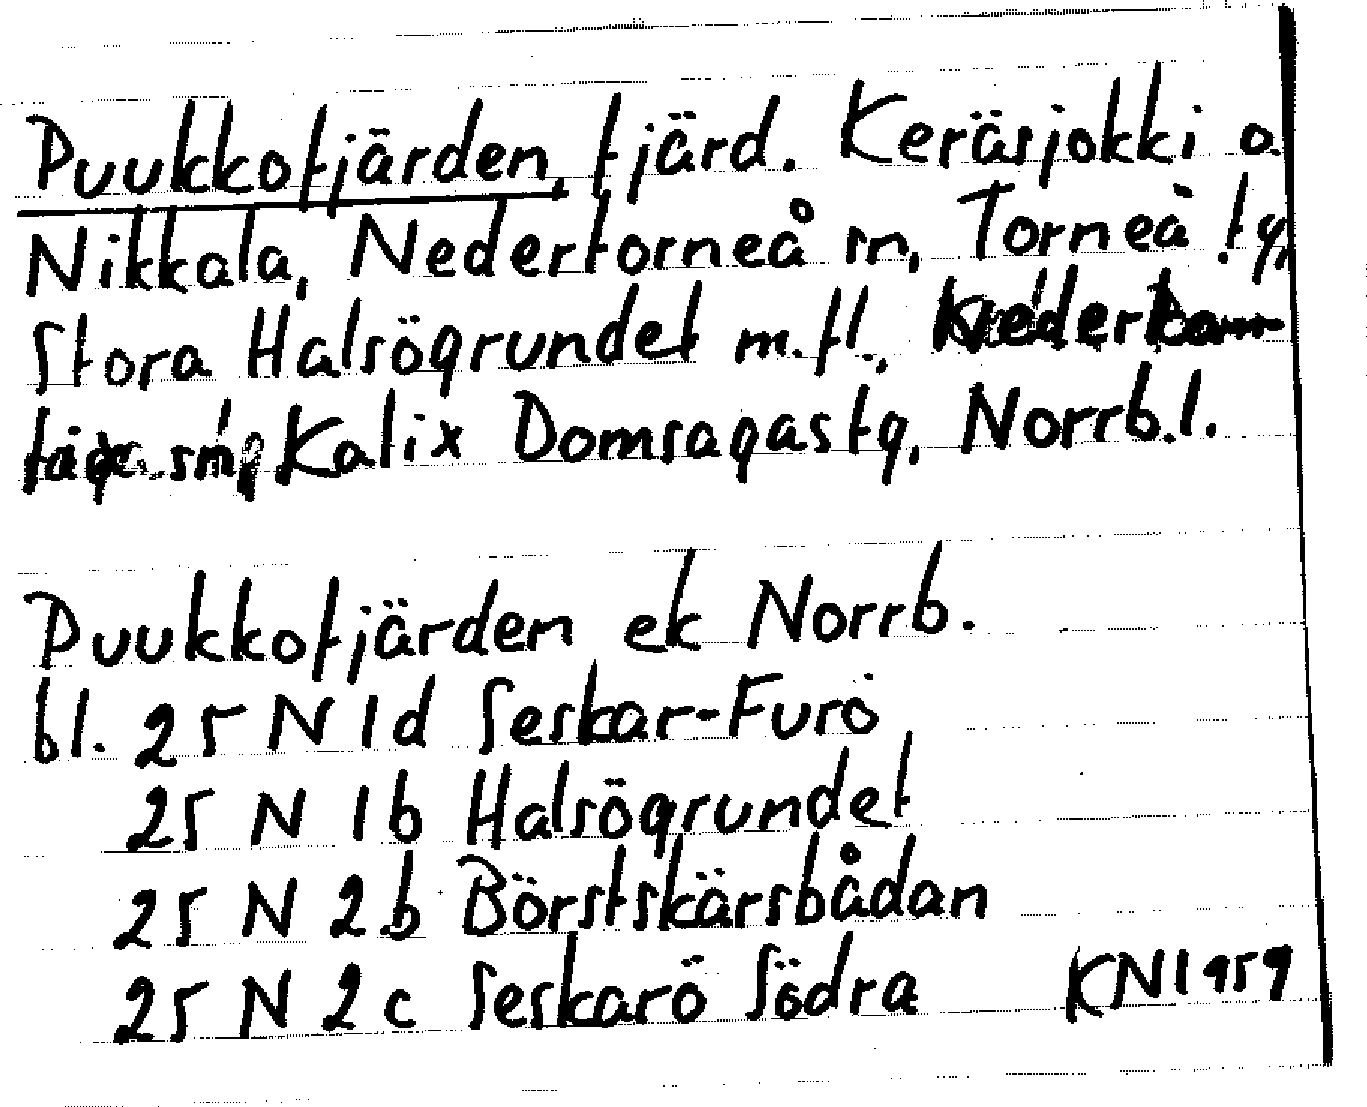 Puukkofjärden, fjärd. Keräsjokki o.
Nikkala, Nedertorneå sn, Torneå tg,
Stora Halsögrundet m.fl.,
Kalix Domsagastg, Norrb.l.
Puukkofjärden ek Norrb.
bl. 25 N 1d Seskar-Furö
25 N 1b Halsögrundet
25 N 2b Börstskärsbådan
25 N 2c Seskarö Södra KN1959